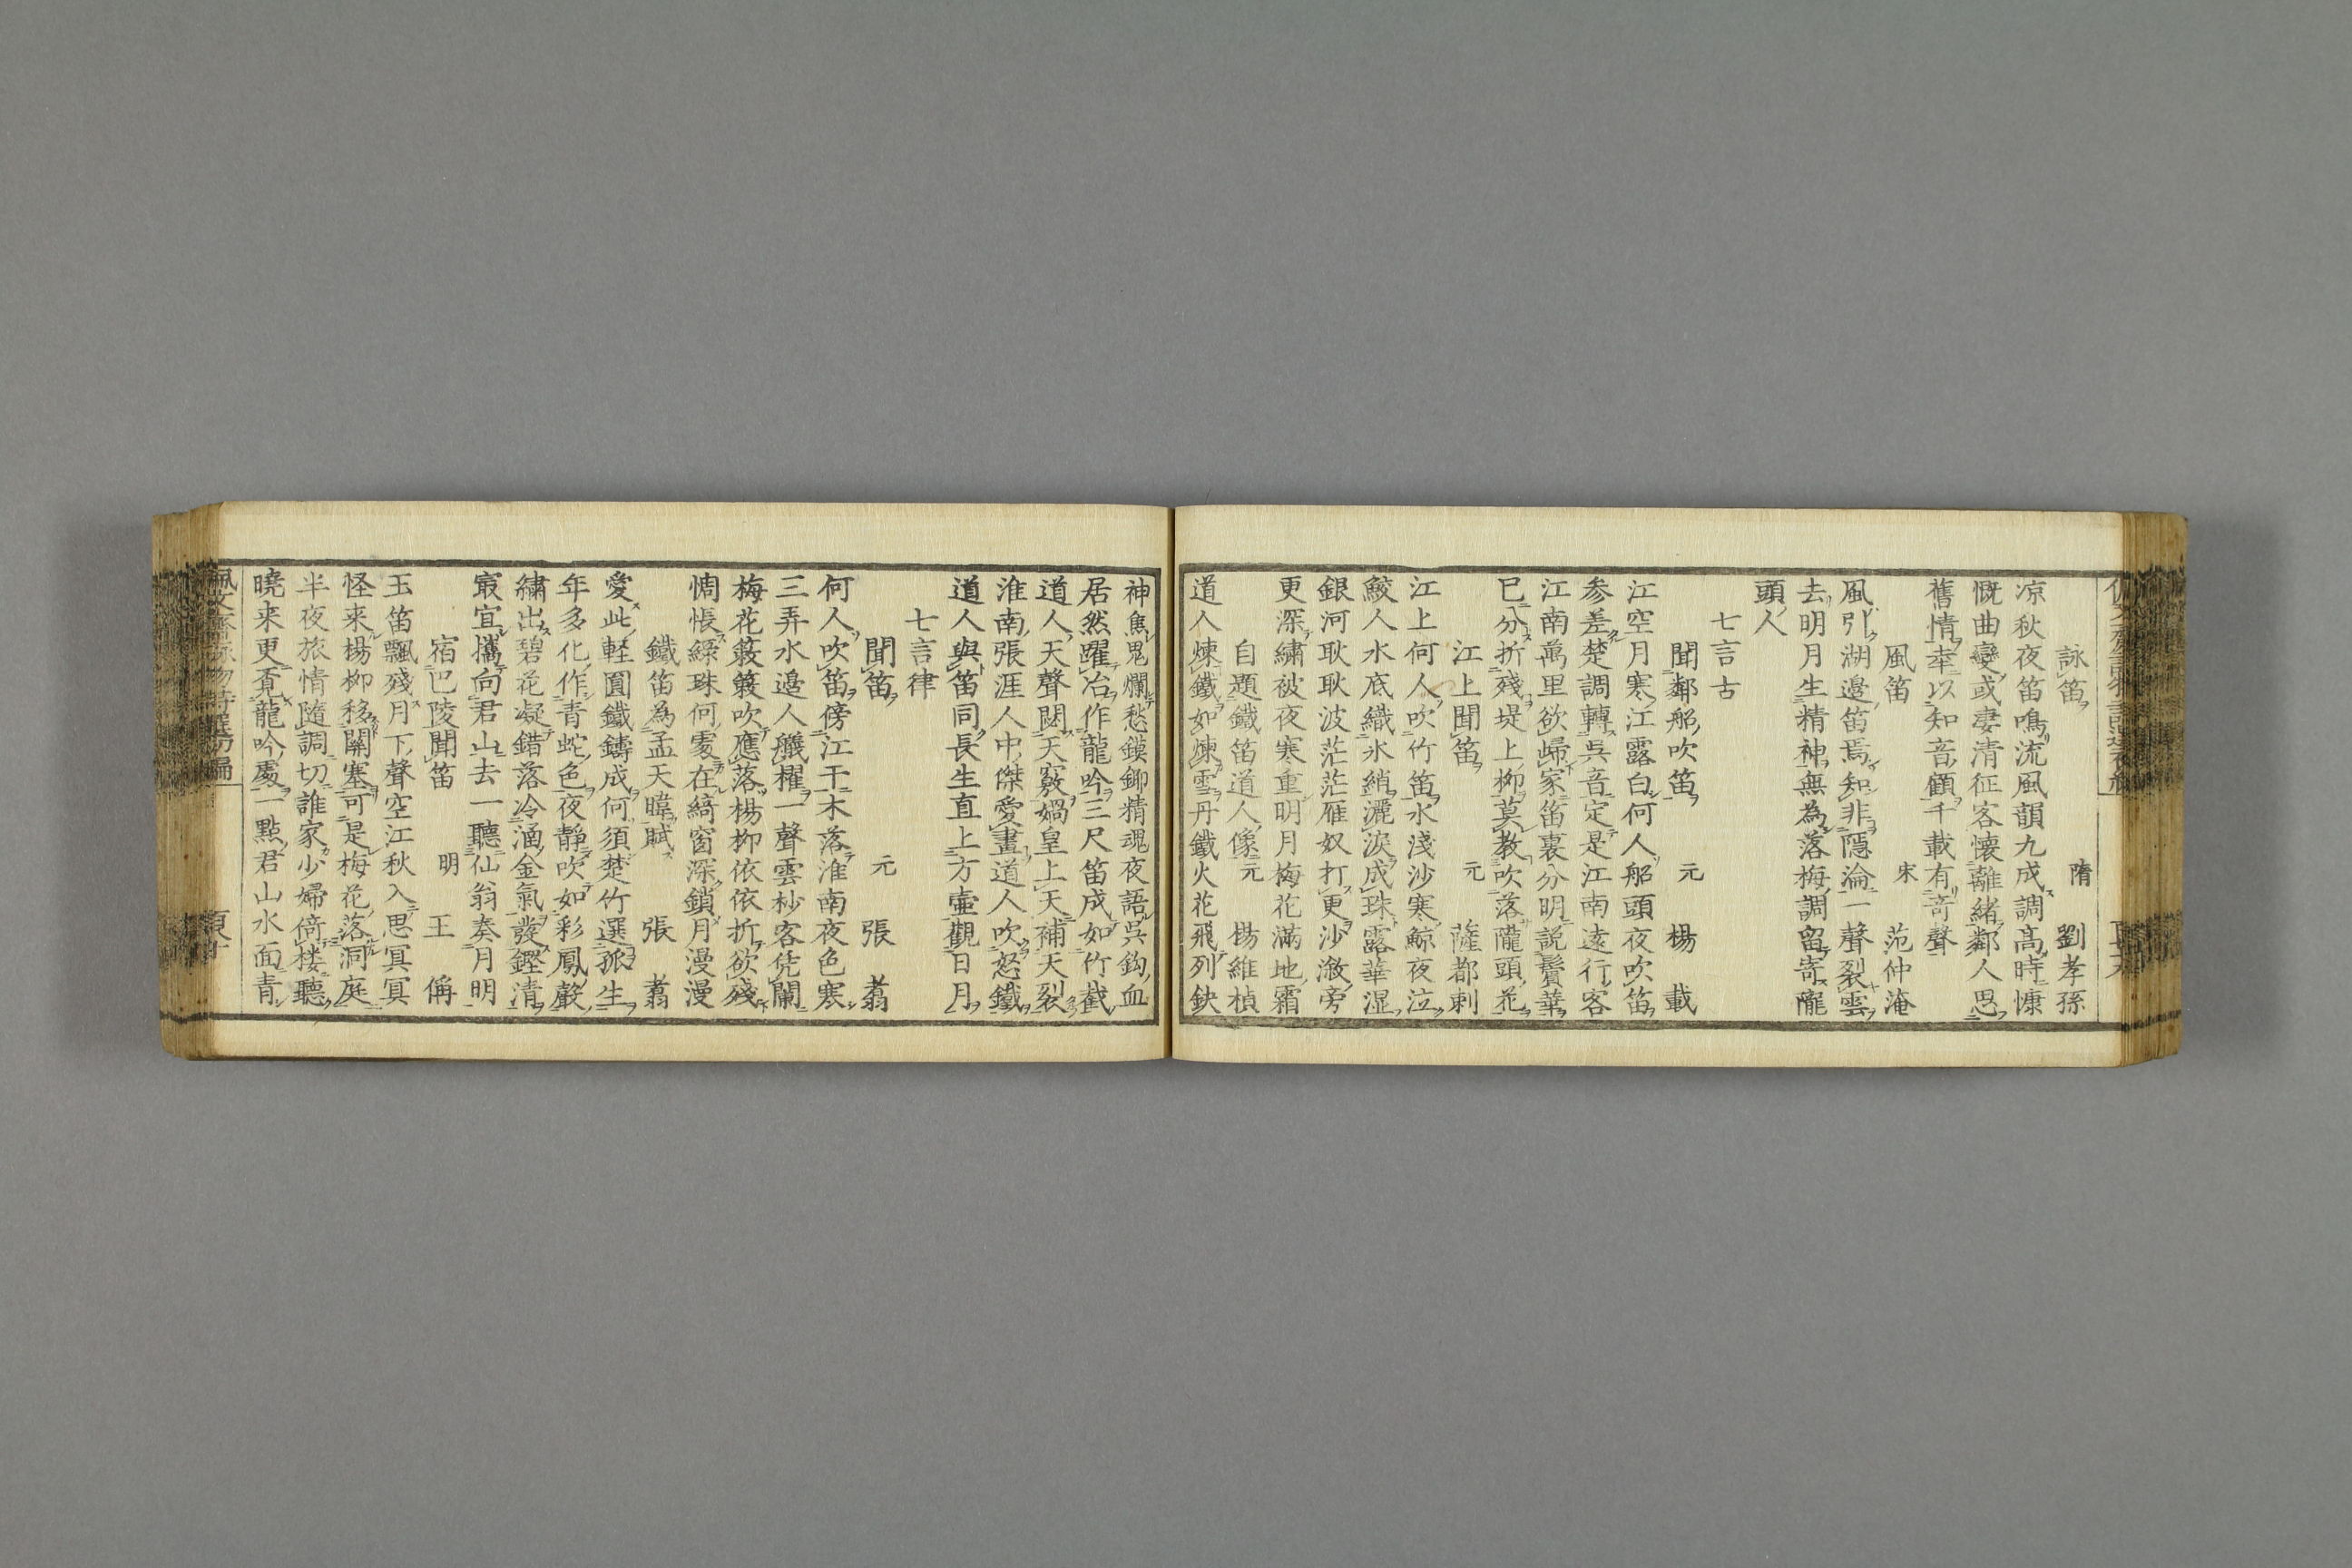 詠笛　隋　劉孝孫
凉秋夜笛鳴流風韻九成調高時慷
慨曲變或凄清征客懷離緒鄰人思
舊情幸以知音顧千載有奇聲
風笛　宋　范仲淹
風引湖邉笛焉知非隱淪一聲裂雲
去明月生精神無為落梅調留寄隴
頭人
七言古
聞鄰船吹笛　元　楊載
江空月寒江露白何人船頭夜吹笛
参差楚調轉呉音定是江南遠行客
江南萬里欲歸家笛裏分明説鬢華
已分折殘堤上柳莫教吹落隴頭花
江上聞笛　元　薩都剌
江上何人吹竹笛水淺沙寒鯨夜泣
鮫人水底織氷綃灑淚成珠露華湿
銀河耿耿波茫茫雁奴打更沙漵旁
更深繡被夜寒重明月梅花滿地霜
自題鐵笛道人像　元　楊維楨
道人煉鐵如煉雪丹鐵火花飛列鈌
神焦鬼爛愁鏌鋣精魂夜語呉鈎血
居然躍冶作龍吟三尺笛成如竹截
道人天聲閟天竅媧皇上天補天裂
淮南張涯人中傑愛畫道人吹怒鐵
道人與笛同長生直上方壷觀日月
七言律
聞笛　元　張翥
何人吹笛傍江干木落淮南夜色寒
三弄水邉人艤櫂一聲雲杪客凭闌
梅花簌簌吹應落楊柳依依折欲殘
惆悵緑珠何處在綺窗深鎖月漫漫
鐵笛為孟天暐賦　張翥
愛此軽圓鐵鑄成何須楚竹選孤生
年多化作青蛇色夜静吹如彩鳳聲
繡出碧花凝錯落冷涵金氣發鏗清
㝡宜攜向君山去一聽仙翁奏月明
宿巴陵聞笛　明　王偁
玉笛飄殘月下聲空江秋入思冥冥
怪来楊柳移關塞可是梅花落洞庭
半夜旅情隨調切誰家少婦倚楼聽
曉来更覔龍吟處一點君山水面青